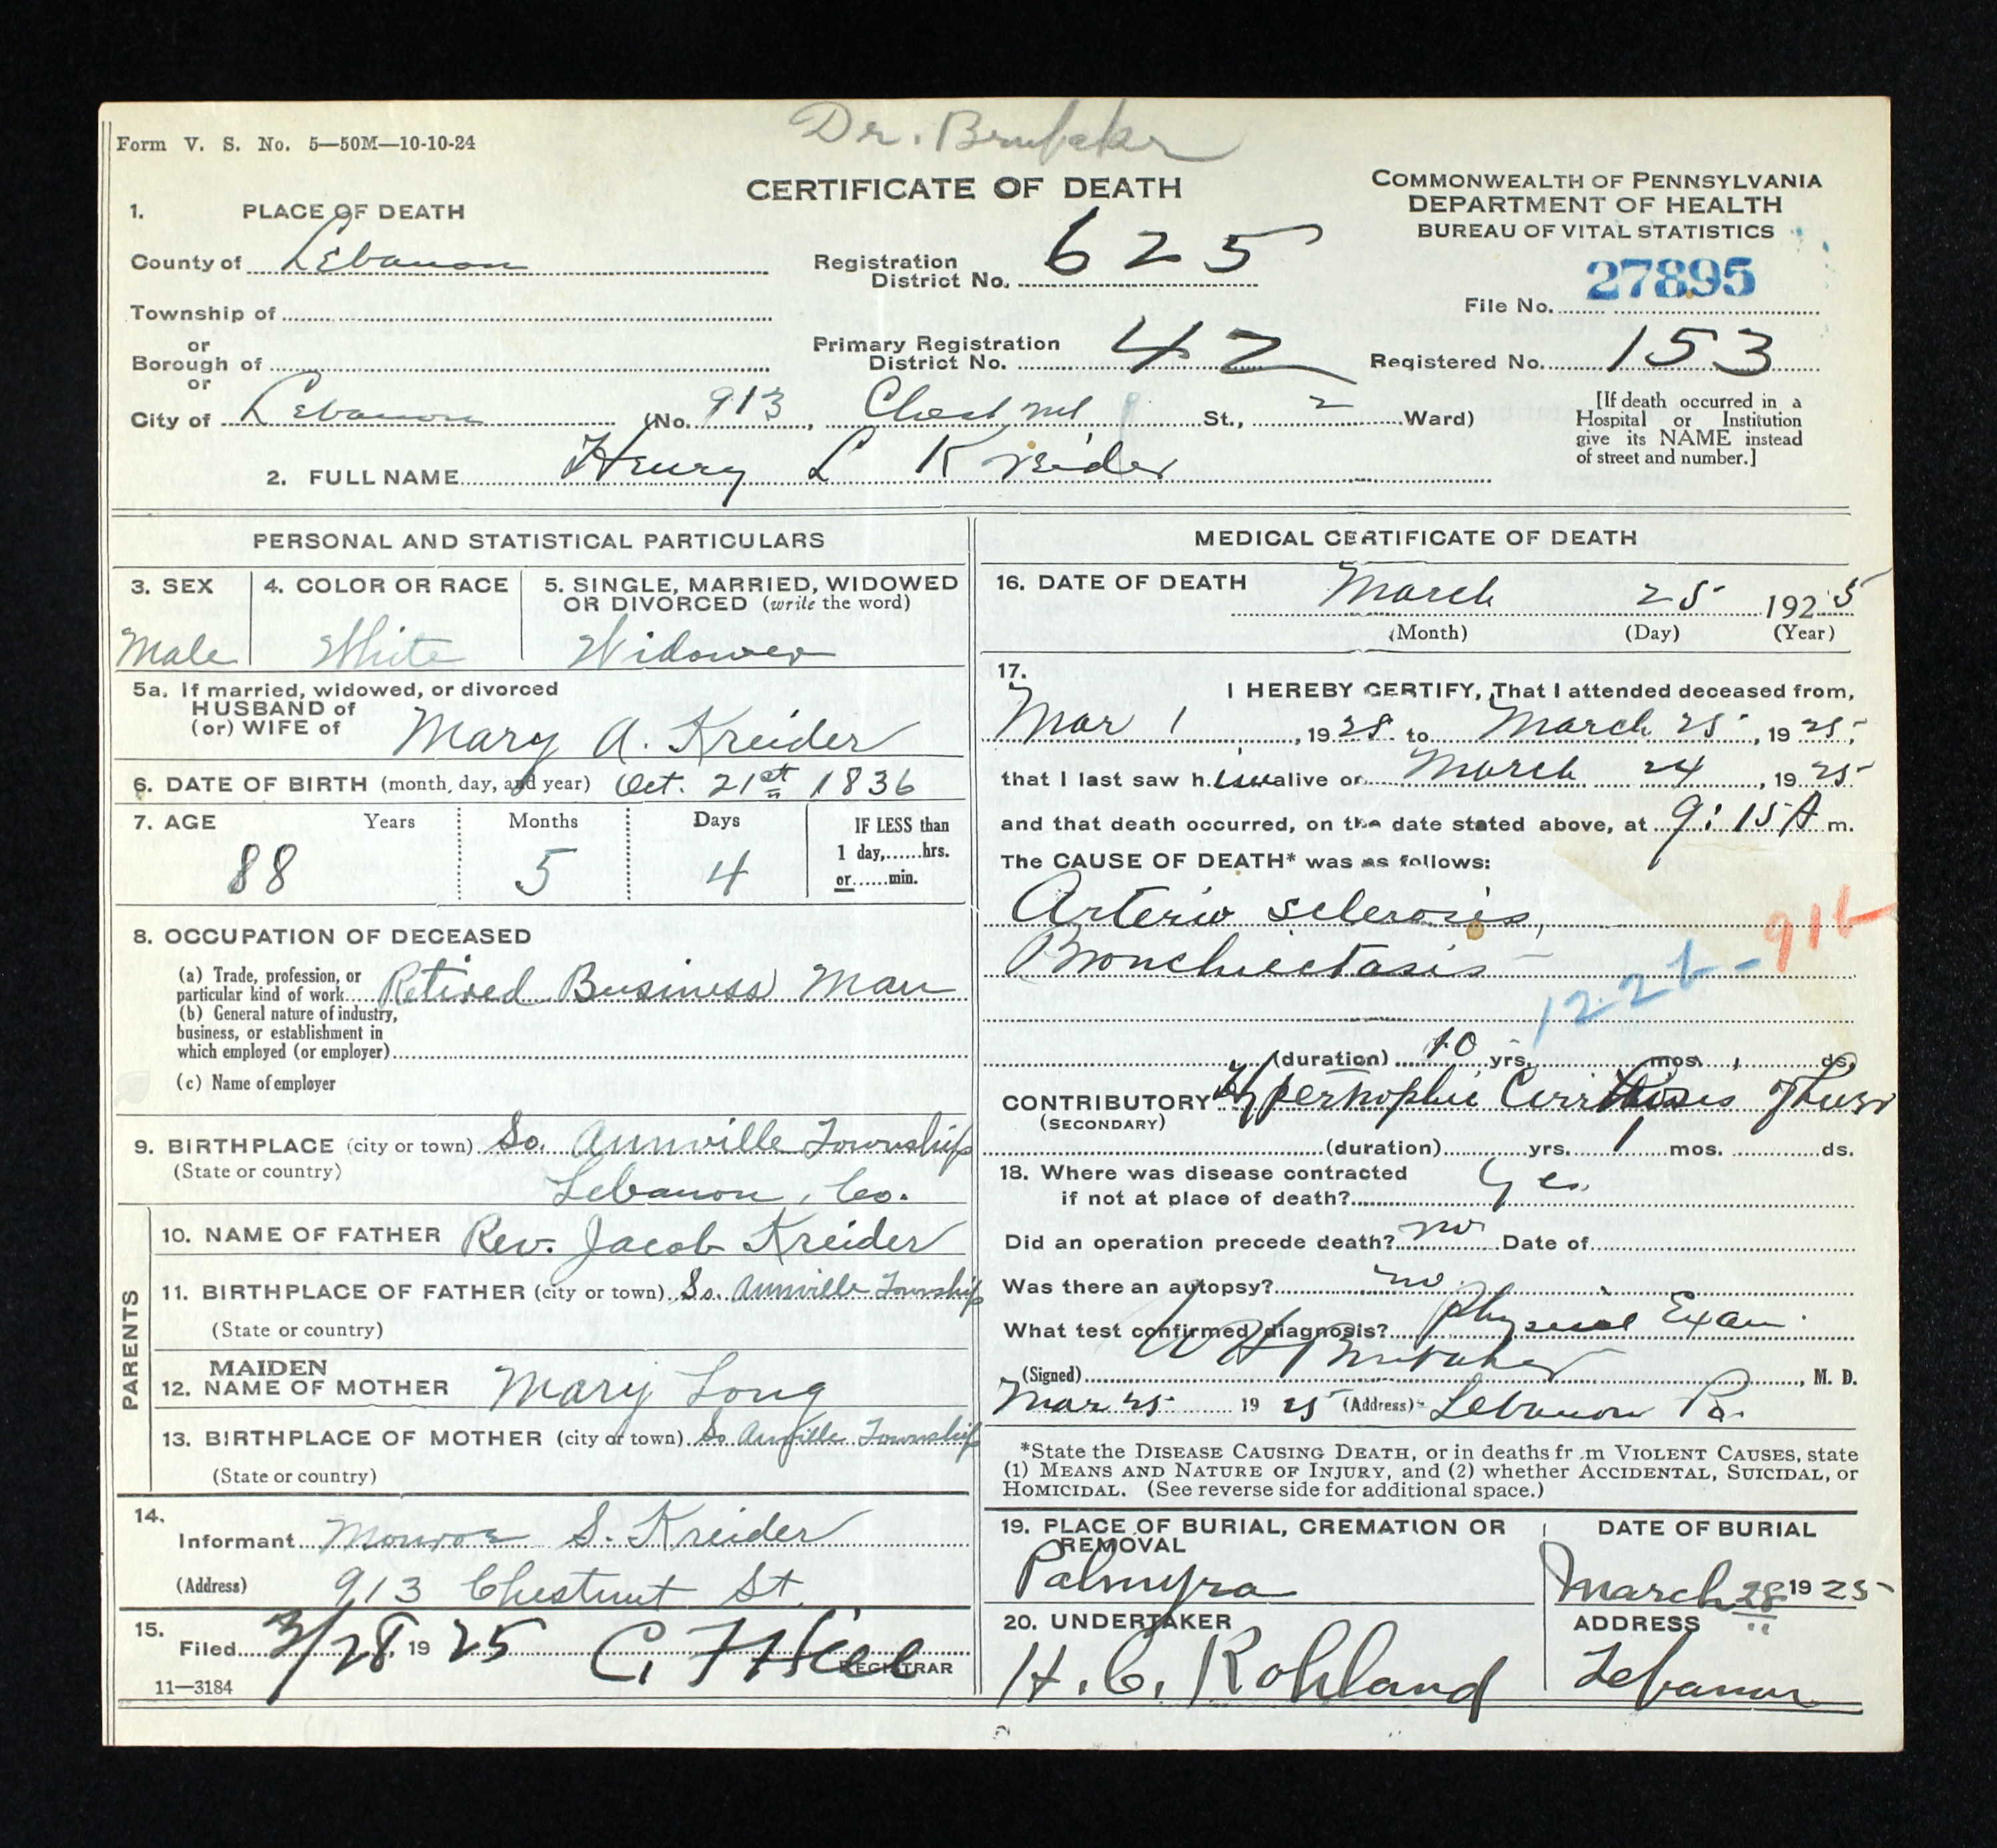 Dr. Brubaker
Form V. S. No. 5—50M—10-10-24
CERTIFICATE OF DEATH
COMMONWEALTH OF PENNSYLVANIA
DEPARTMENT OF HEALTH
BUREAU OF VITAL STATISTICS
1. PLACE OF DEATH
County of Lebanon
Registration District No. 625
File No. 27895
Township of
or
Borough of
Primary Registration District No. 42
Registered No. 153
or
City of Lebanon (No. 913, Chestnut St., 2 Ward)
[If death occurred in a
Hospital or Institution
give its NAME instead
of street and number.]
2. FULL NAME Henry L Kreider
PERSONAL AND STATISTICAL PARTICULARS
3. SEX
Male
4. COLOR OR RACE
White
5. SINGLE, MARRIED, WIDOWED
OR DIVORCED (write the word)
Widower
5a. If married, widowed, or divorced
HUSBAND of
(or) WIFE of
Mary A. Kreider
6. DATE OF BIRTH (month, day, and year) Oct. 21st 1836
7. AGE Years Months Days
88 5 4
IF LESS than
1 day,......hrs.
or......min.
8. OCCUPATION OF DECEASED
(a) Trade, profession, or
particular kind of work Retired Business Man
(b) General nature of industry,
business, or establishment in
which employed (or employer)
(c) Name of employer
9. BIRTHPLACE (city or town) So. Annville Township
(State or country) Lebanon, Co.
PARENTS
10. NAME OF FATHER Rev. Jacob Kreider
11. BIRTHPLACE OF FATHER (city or town) So. Annville Township
(State or country)
12. MAIDEN NAME OF MOTHER Mary Long
13. BIRTHPLACE OF MOTHER (city or town) So Annville Township
(State or country)
14.
Informant Monroe S. Kreider
(Address) 913 Chestnut St.
15.
Filed 3/28, 1925 C. F.
REGISTRAR
11—3184
MEDICAL CERTIFICATE OF DEATH
16. DATE OF DEATH March 25 1925
(Month) (Day) (Year)
17.
I HEREBY CERTIFY, That I attended deceased from,
Mar 1, 1925 to March 25, 1925,
that I last saw him alive on March 24, 1925
and that death occurred, on the date stated above, at 9:15 A m.
The CAUSE OF DEATH* was as follows:
Arterio sclerosis,
Bronchiectasis
122b - 91b
(duration) 10 yrs. mos. ds.
CONTRIBUTORY Hypertrophic Cirrhosis of Liver
(SECONDARY)
(duration) yrs. 1 mos. ds.
18. Where was disease contracted
if not at place of death? Yes
Did an operation precede death? no Date of
Was there an autopsy? no
What test confirmed diagnosis? Physical Exam.
(Signed) W H Brubaker, M. D.
Mar 25 1925 (Address) Lebanon Pa.
*State the DISEASE CAUSING DEATH, or in deaths fr.m VIOLENT CAUSES, state
(1) MEANS AND NATURE OF INJURY, and (2) whether ACCIDENTAL, SUICIDAL, or
HOMICIDAL. (See reverse side for additional space.)
19. PLACE OF BURIAL, CREMATION OR
REMOVAL
Palmyra
DATE OF BURIAL
March 28 1925
20. UNDERTAKER
H. C. Rohland
ADDRESS
Lebanon